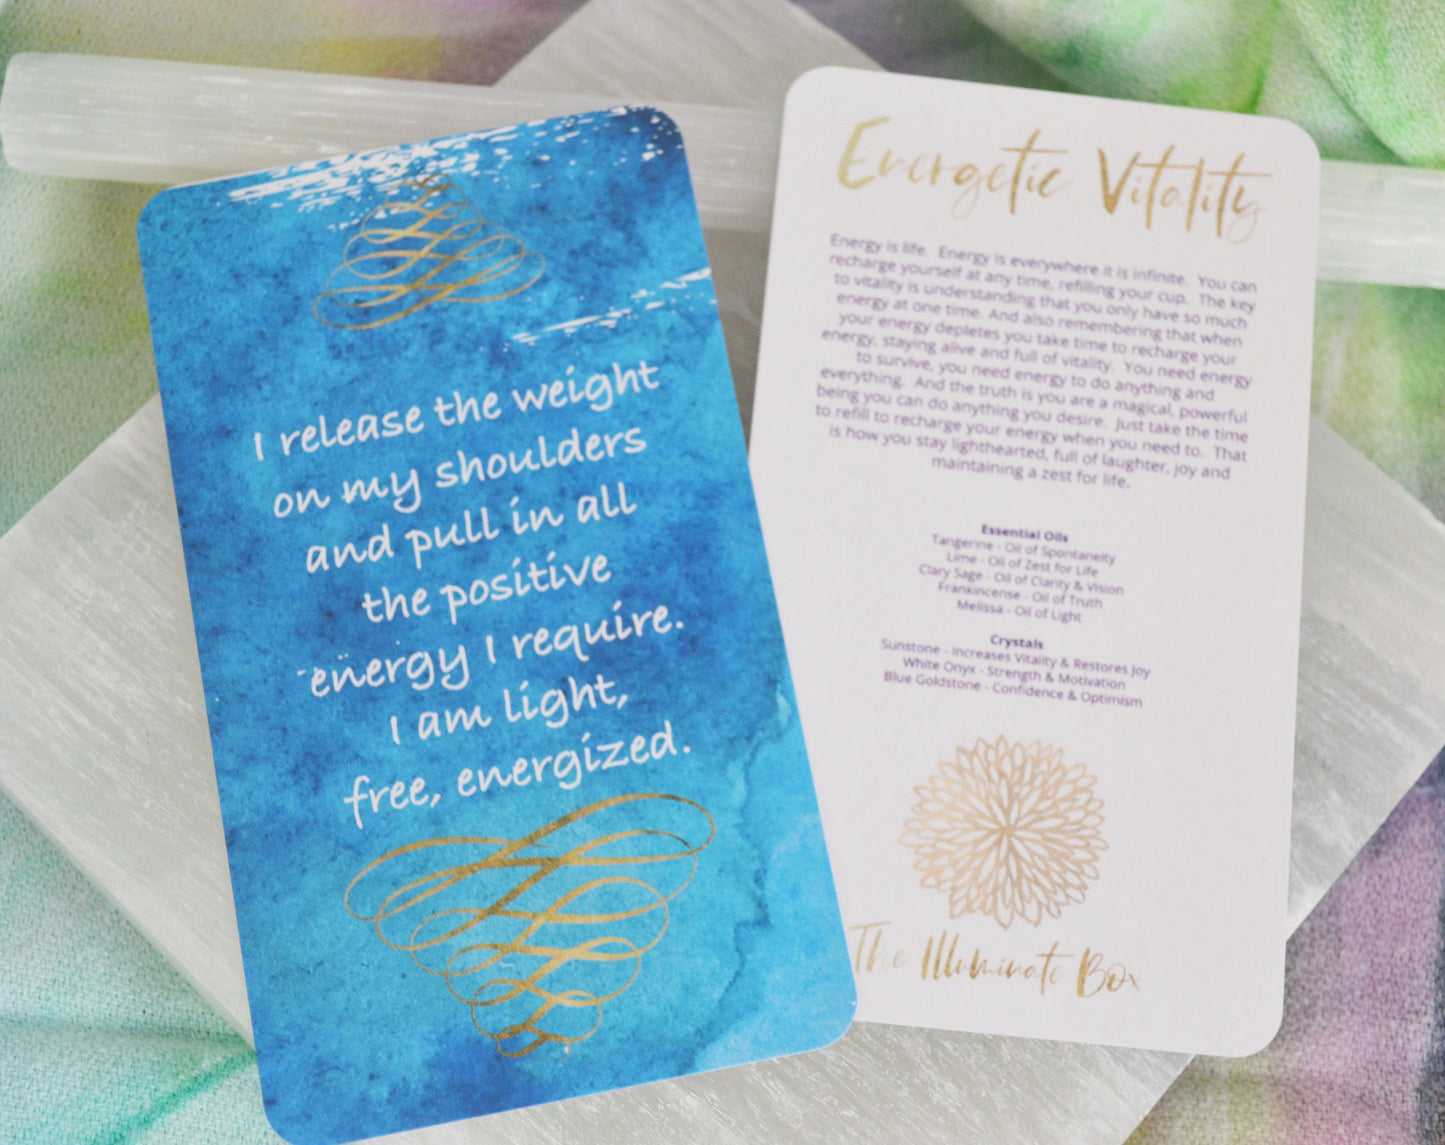 I release the weight
on my shoulders
and pull in all
the positive
energy I require.
I am light,
free, energized.
Energetic Vitality
Energy is life.  Energy is everywhere it is infinite.  You can
recharge yourself at any time, refilling your cup.  The key
to vitality is understanding that you only have so much
energy at one time. And also remembering that when
your energy depletes you take time to recharge your
energy, staying alive and full of vitality.  You need energy
to survive, you need energy to do anything and
everything.  And the truth is you are a magical, powerful
being you can do anything you desire.  Just take the time
to refill to recharge your energy when you need to.  That
is how you stay lighthearted, full of laughter, joy and
maintaining a zest for life.
Essential Oils
Tangerine - Oil of Spontaneity
Lime - Oil of Zest for Life
Clary Sage - Oil of Clarity & Vision
Frankincense - Oil of Truth
Melissa - Oil of Light
Crystals
Sunstone - Increases Vitality & Restores Joy
White Onyx - Strength & Motivation
Blue Goldstone - Confidence & Optimism
The Illuminate Box